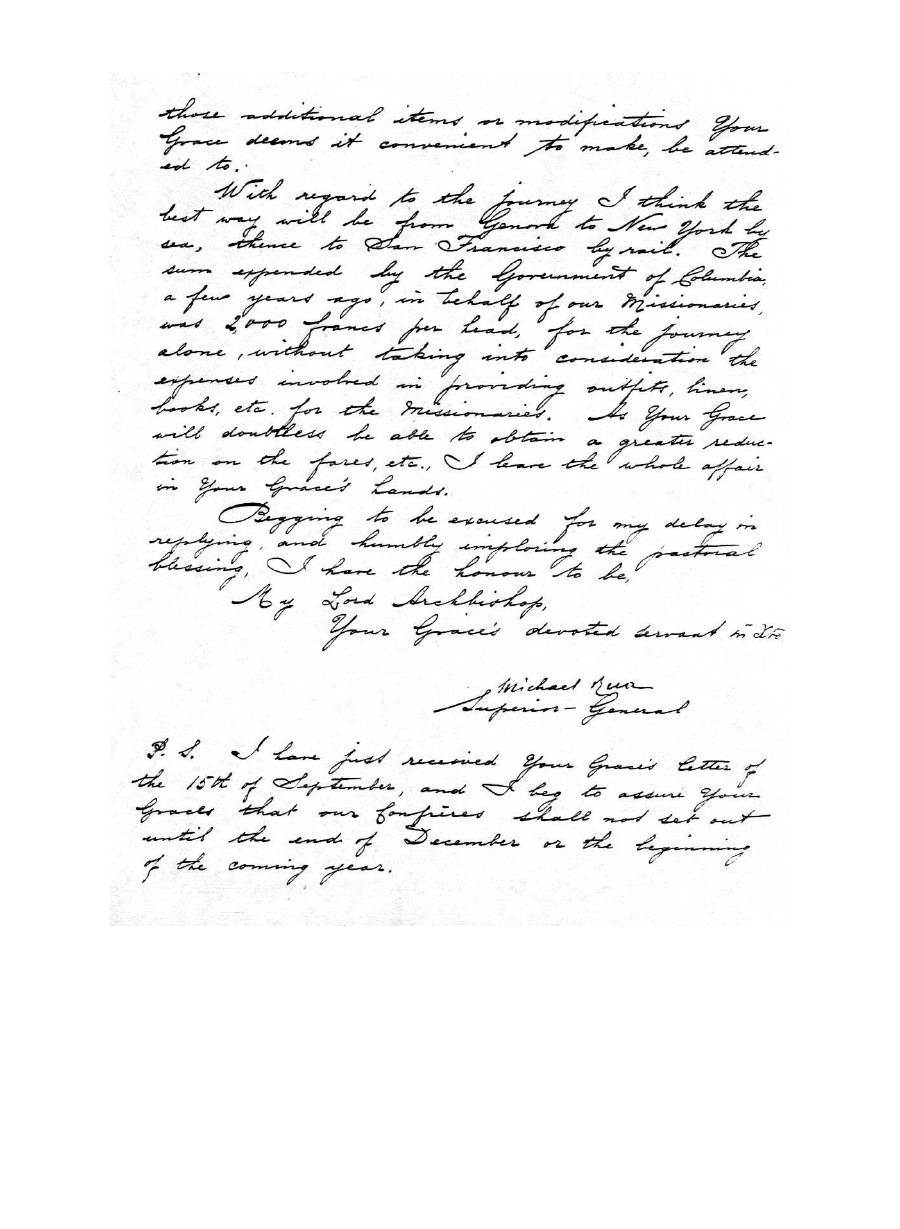 those additional items or modifications Your
Grace deems it convenient to make, be attend-
ed to.
With regard to the journey I think the
best way will be from Genova to New York by
sea, thence to San Francisco by rail. The
sum expended by the Government of Columbia,
a few years ago, in behalf of our Missionaries,
was 2,000 francs per head, for the journey
alone, without taking into consideration the
expenses involved in providing outfits, linen,
books, etc. for the Missionaries. As Your Grace
will doubtless be able to obtain a greater reduc-
tion on the fares, etc., I leave the whole affair
in Your Grace's hands.
Begging to be excused for my delay in
replying, and humbly imploring the pastoral
blessing, I have the honour to be,
My Lord Archbishop,
Your Grace's devoted servant in
Michael Rua
Superior-General
P. S. I have just received Your Grace's letter of
the 15th of September, and I beg to assure Your
Grace's that our Confrères shall not set out
until the end of December or the beginning
of the coming year.